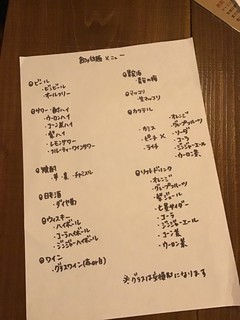 飲み放題メニュー
◎ビール
・ビンビール
・オールフリー
◎サワー・酎ハイ
・ウーロンハイ
・コーン茶ハイ
・緑ハイ
・レモンサワー
・フルーティーワインサワー
◎焼酎
・芋・麦・チャミスル
◎日本酒
◎ウィスキー
・ハイボール
・コーラハイボール
・ジンジャーハイボール
◎ワイン
・グラスワイン(赤or白)
◎マッコリ
・生マッコリ
◎カクテル
・カシス
・ピーチ ×
・ライチ
・オレンジ
・グレープフルーツ
・ソーダ
・コーラ
・ジンジャーエール
・ウーロン茶
◎ソフトドリンク
・オレンジ
・グレープフルーツ
・コーラ
・ジンジャーエール
・コーン茶
・ウーロン茶
※グラスは交換制になります